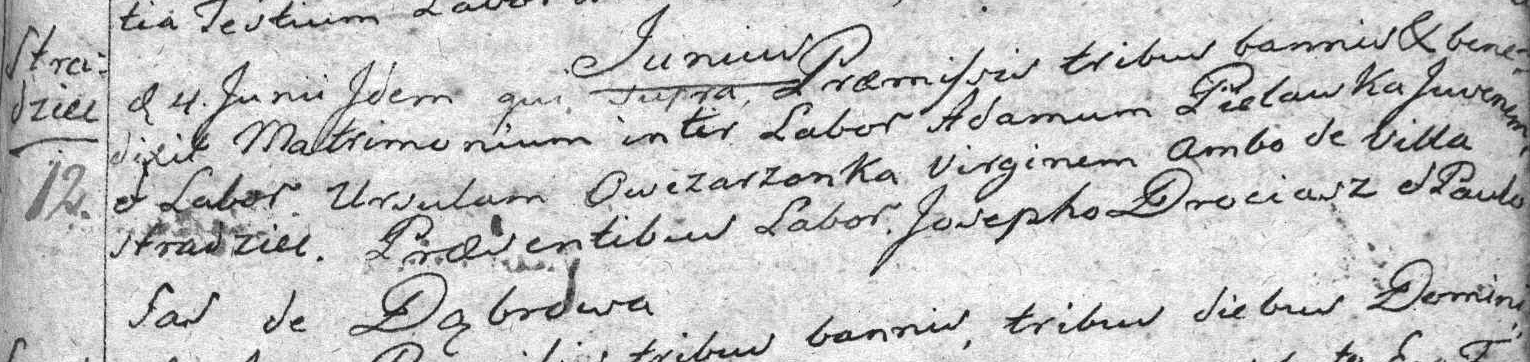 tia Testium Labor
Junius
Stra-
dziec
12.
d 4. Junii Idem qui supra, Præmissis tribus bannis & bene-
dixit Matrimonium inter Labor Adamum Pielawka Juvenem,
et Labor. Ursulam Owczarzonka Virginem ambo de Villa
Stradziec. Præsentibus Labor. Josepho Drociasz et Paulo
Sas de Dąbrowa
tribus bannis, tribus diebus Domini